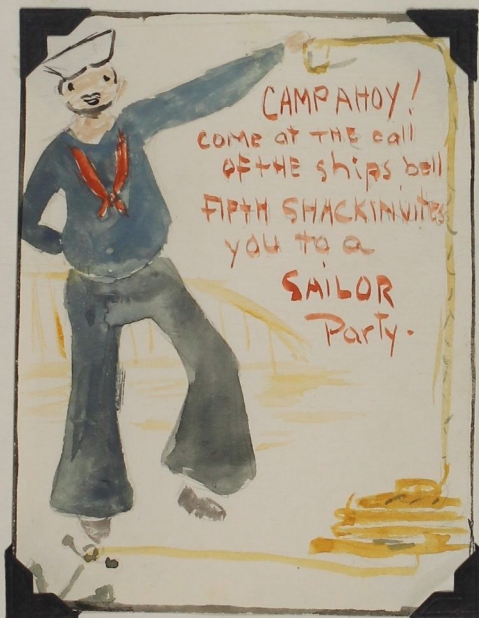 CAMP AHOY!
COME at THE call
OF THE ships bell
FIFTH SHACK INVITES
you to a
SAILOR
Party.